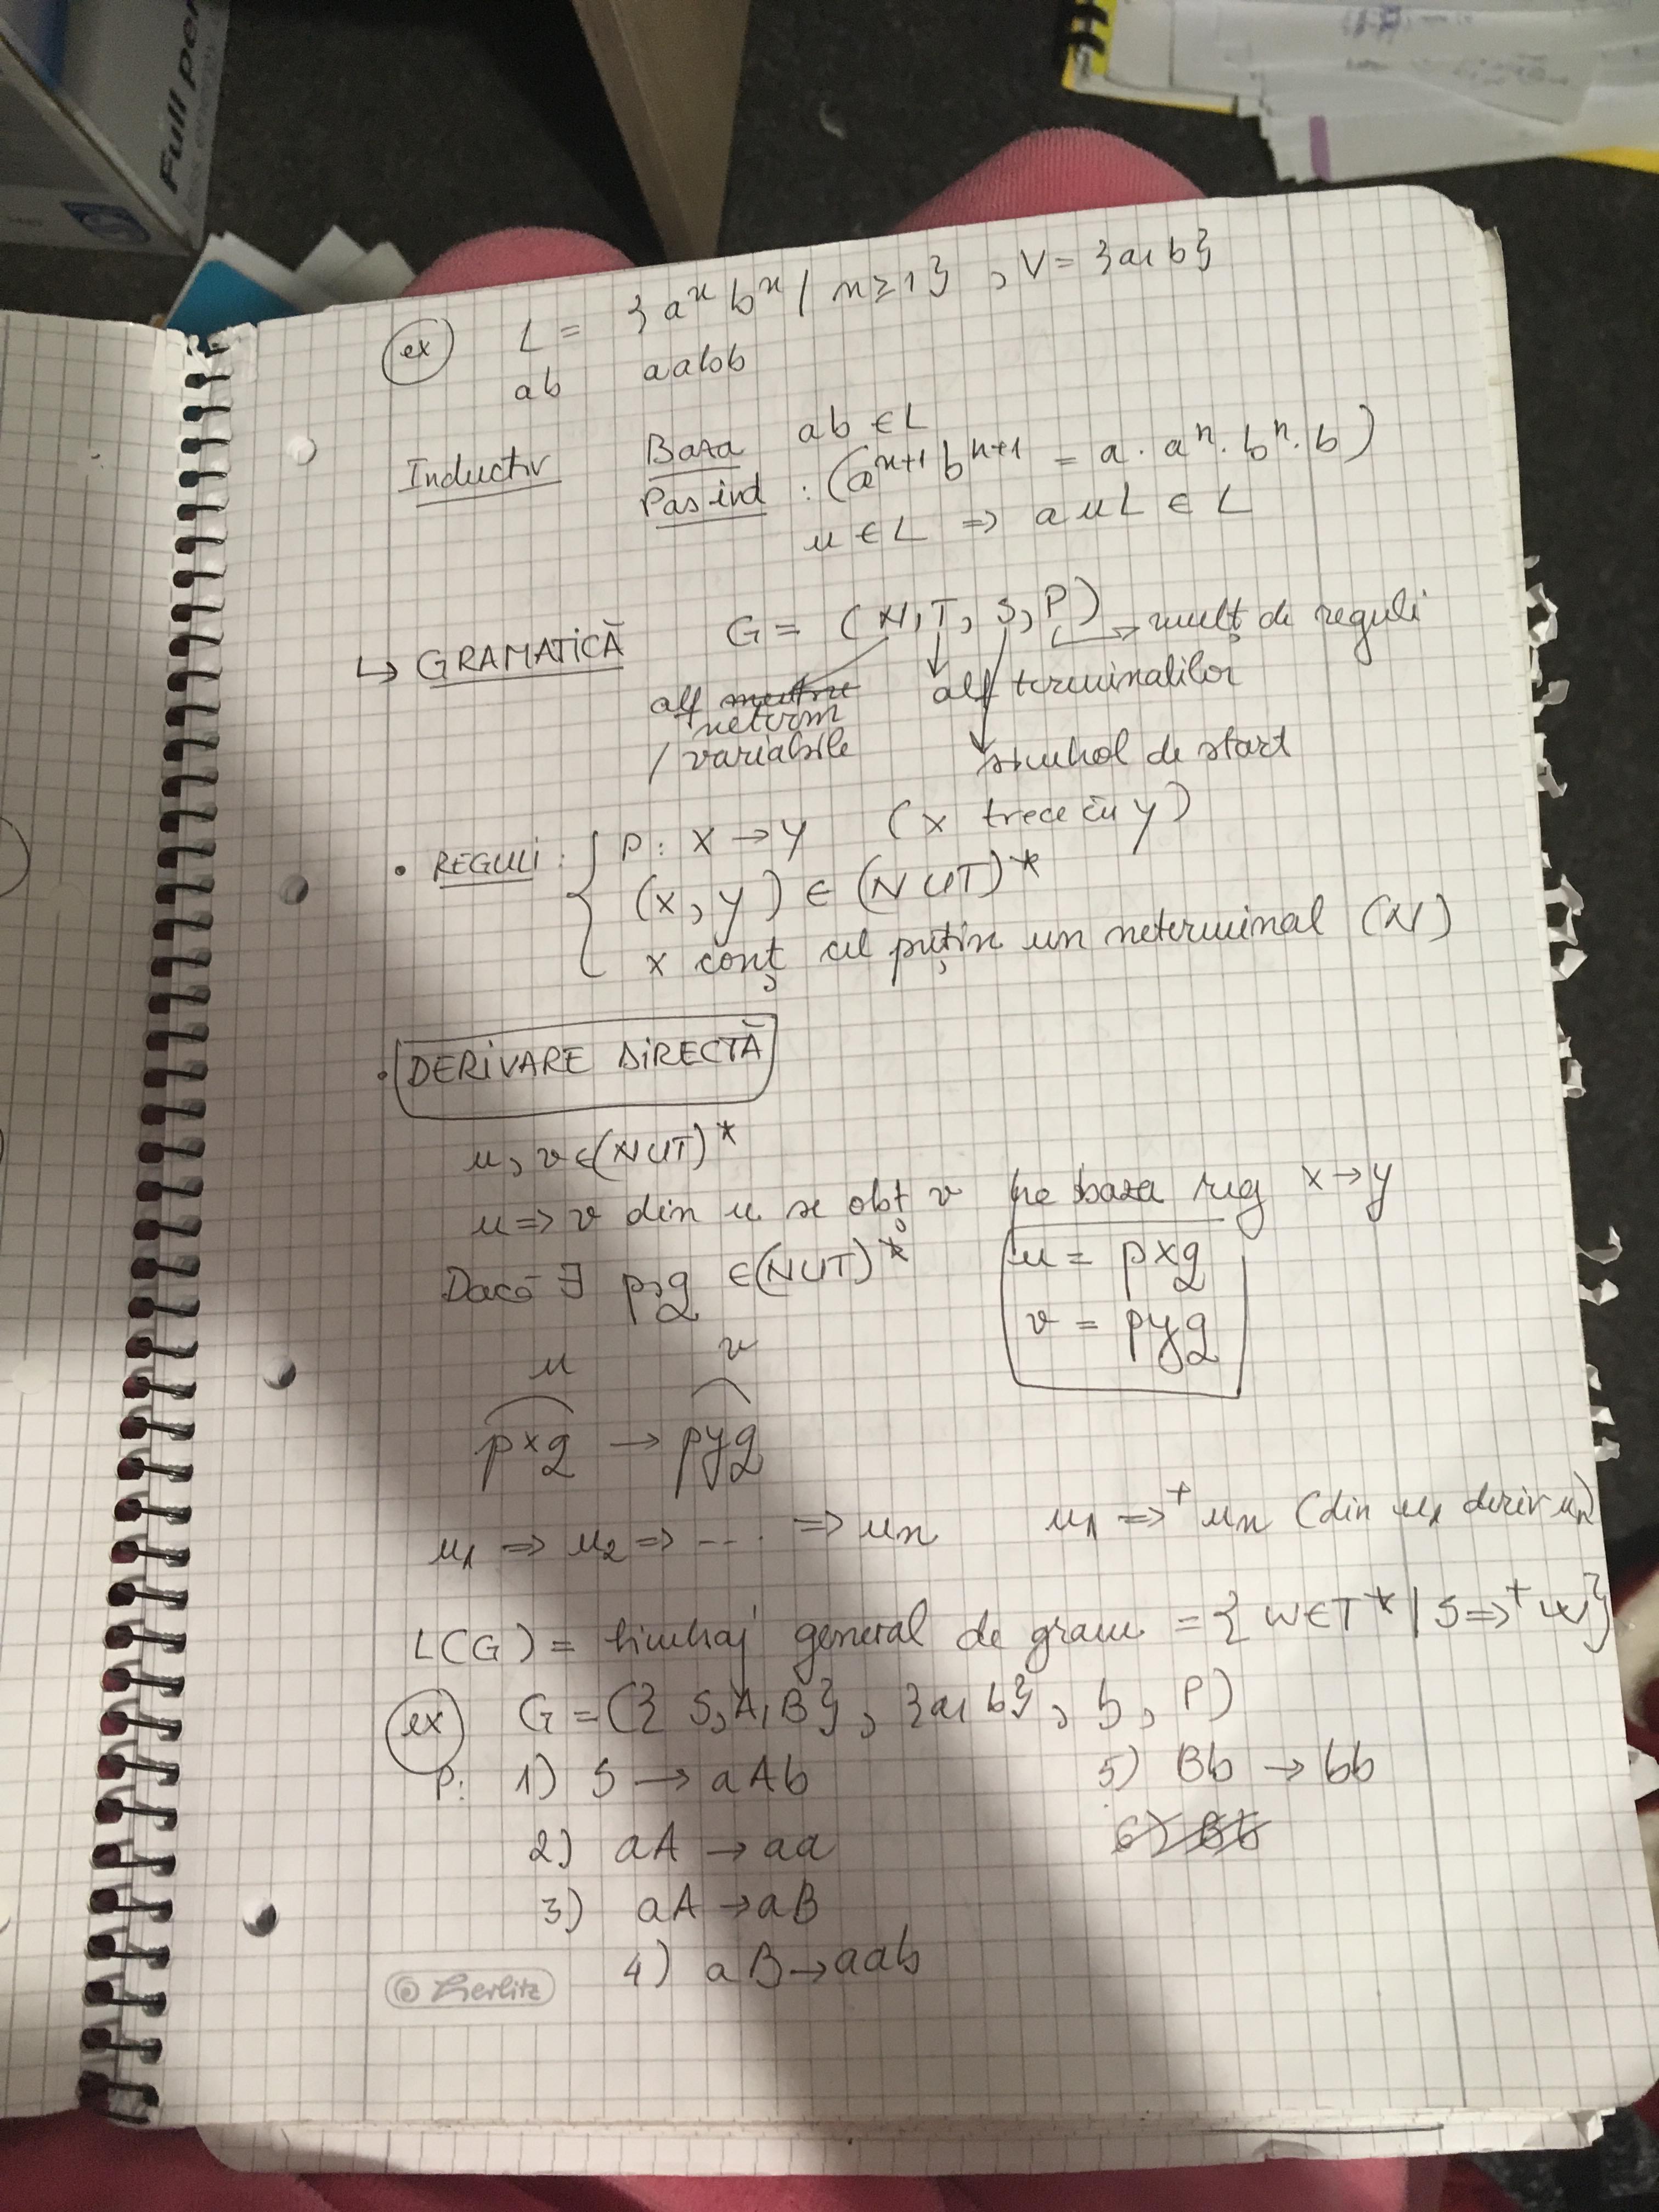 Full per
ex L = {aⁿ bⁿ / n ≥ 1} , V = {a, b}
ab aabb
Inductiv Baza ab ∈ L
Pas ind : (aⁿ⁺¹ bⁿ⁺¹ = a · aⁿ · bⁿ · b)
u ∈ L => a u L ∈ L
↳ GRAMATICĂ G = (N, T, S, P) → mulț de reguli
alf neterm alf terminalilor
/ variabile simbol de start
• REGULI : { P : x → y (x trece în y)
(x, y) ∈ (N ∪ T)*
x conț cel puțin un neterminal (N)
• DERIVARE DIRECTĂ
u, v ∈ (N ∪ T)*
u => v din u se obț v pe baza reg x → y
Dacă ∃ p, q ∈ (N ∪ T)* u = pxq
v = pyq
u v
pxq → pyq
u₁ => u₂ => ... => uₙ u₁ =>⁺ uₙ (din u₁ deriv uₙ)
L(G) = limbaj general de gram = {w ∈ T* / S =>⁺ w}
ex G = ({S, A, B}, {a, b}, S, P)
P: 1) S → aAb 5) Bb → bb
2) aA → aa 6) Bb
3) aA → aB
4) aB → aab
© Herlitz